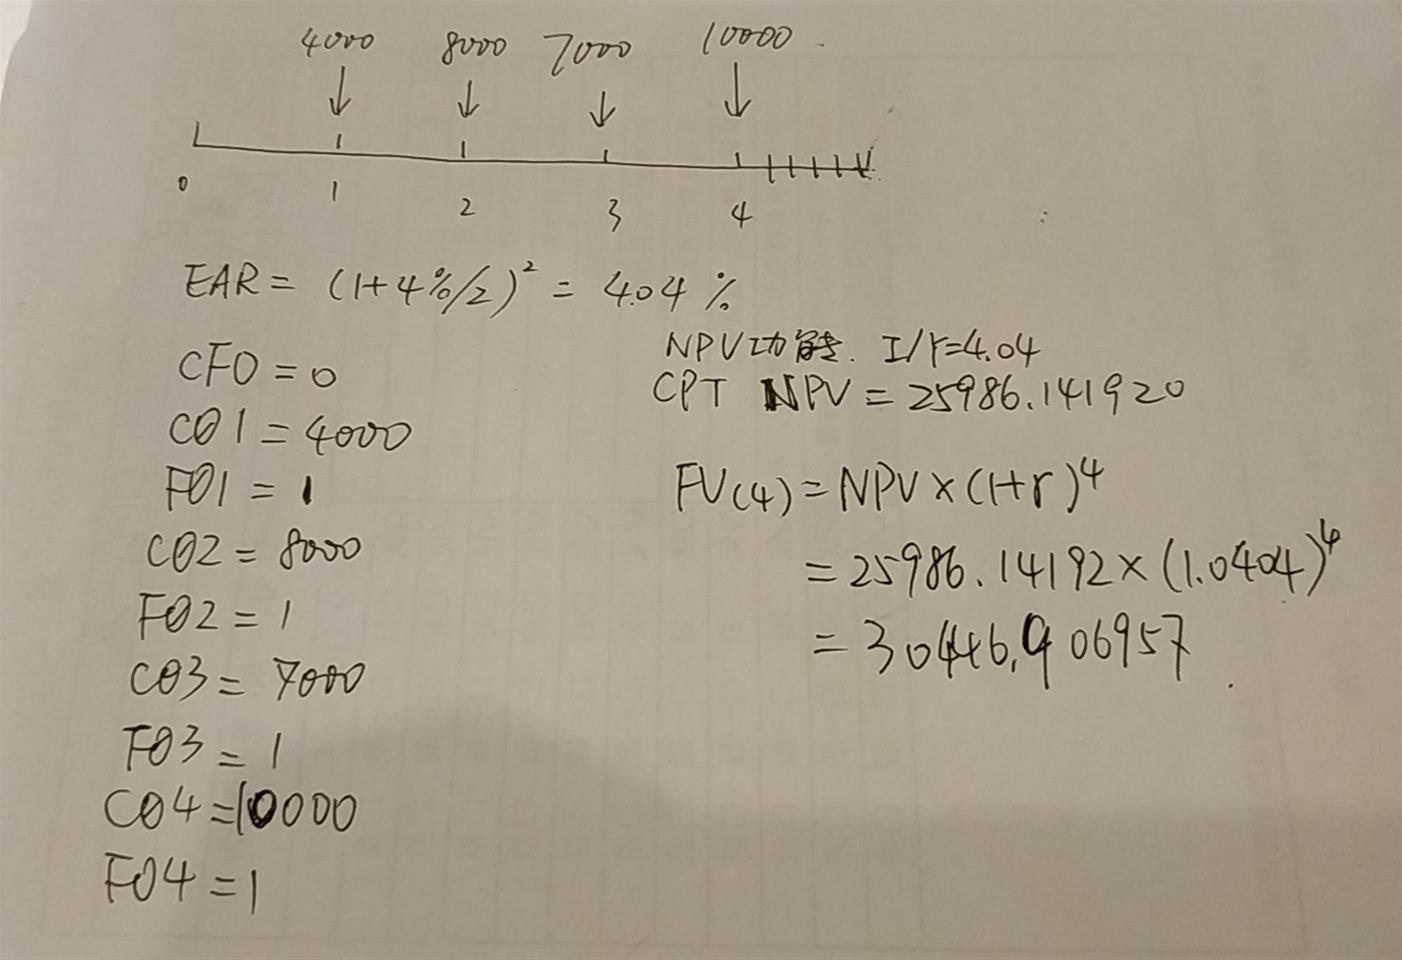 4000 8000 7000 10000
0 1 2 3 4
EAR = (1+4%/2)² = 4.04 %
NPV功能. I/r=4.04
CF0 = 0
CPT NPV = 25986.141920
C01 = 4000
F01 = 1
FV(4) = NPV × (1+r)⁴
C02 = 8000
= 25986.14192 × (1.0404)⁴
F02 = 1
= 30446.906957
C03 = 7000
F03 = 1
C04 = 10000
F04 = 1